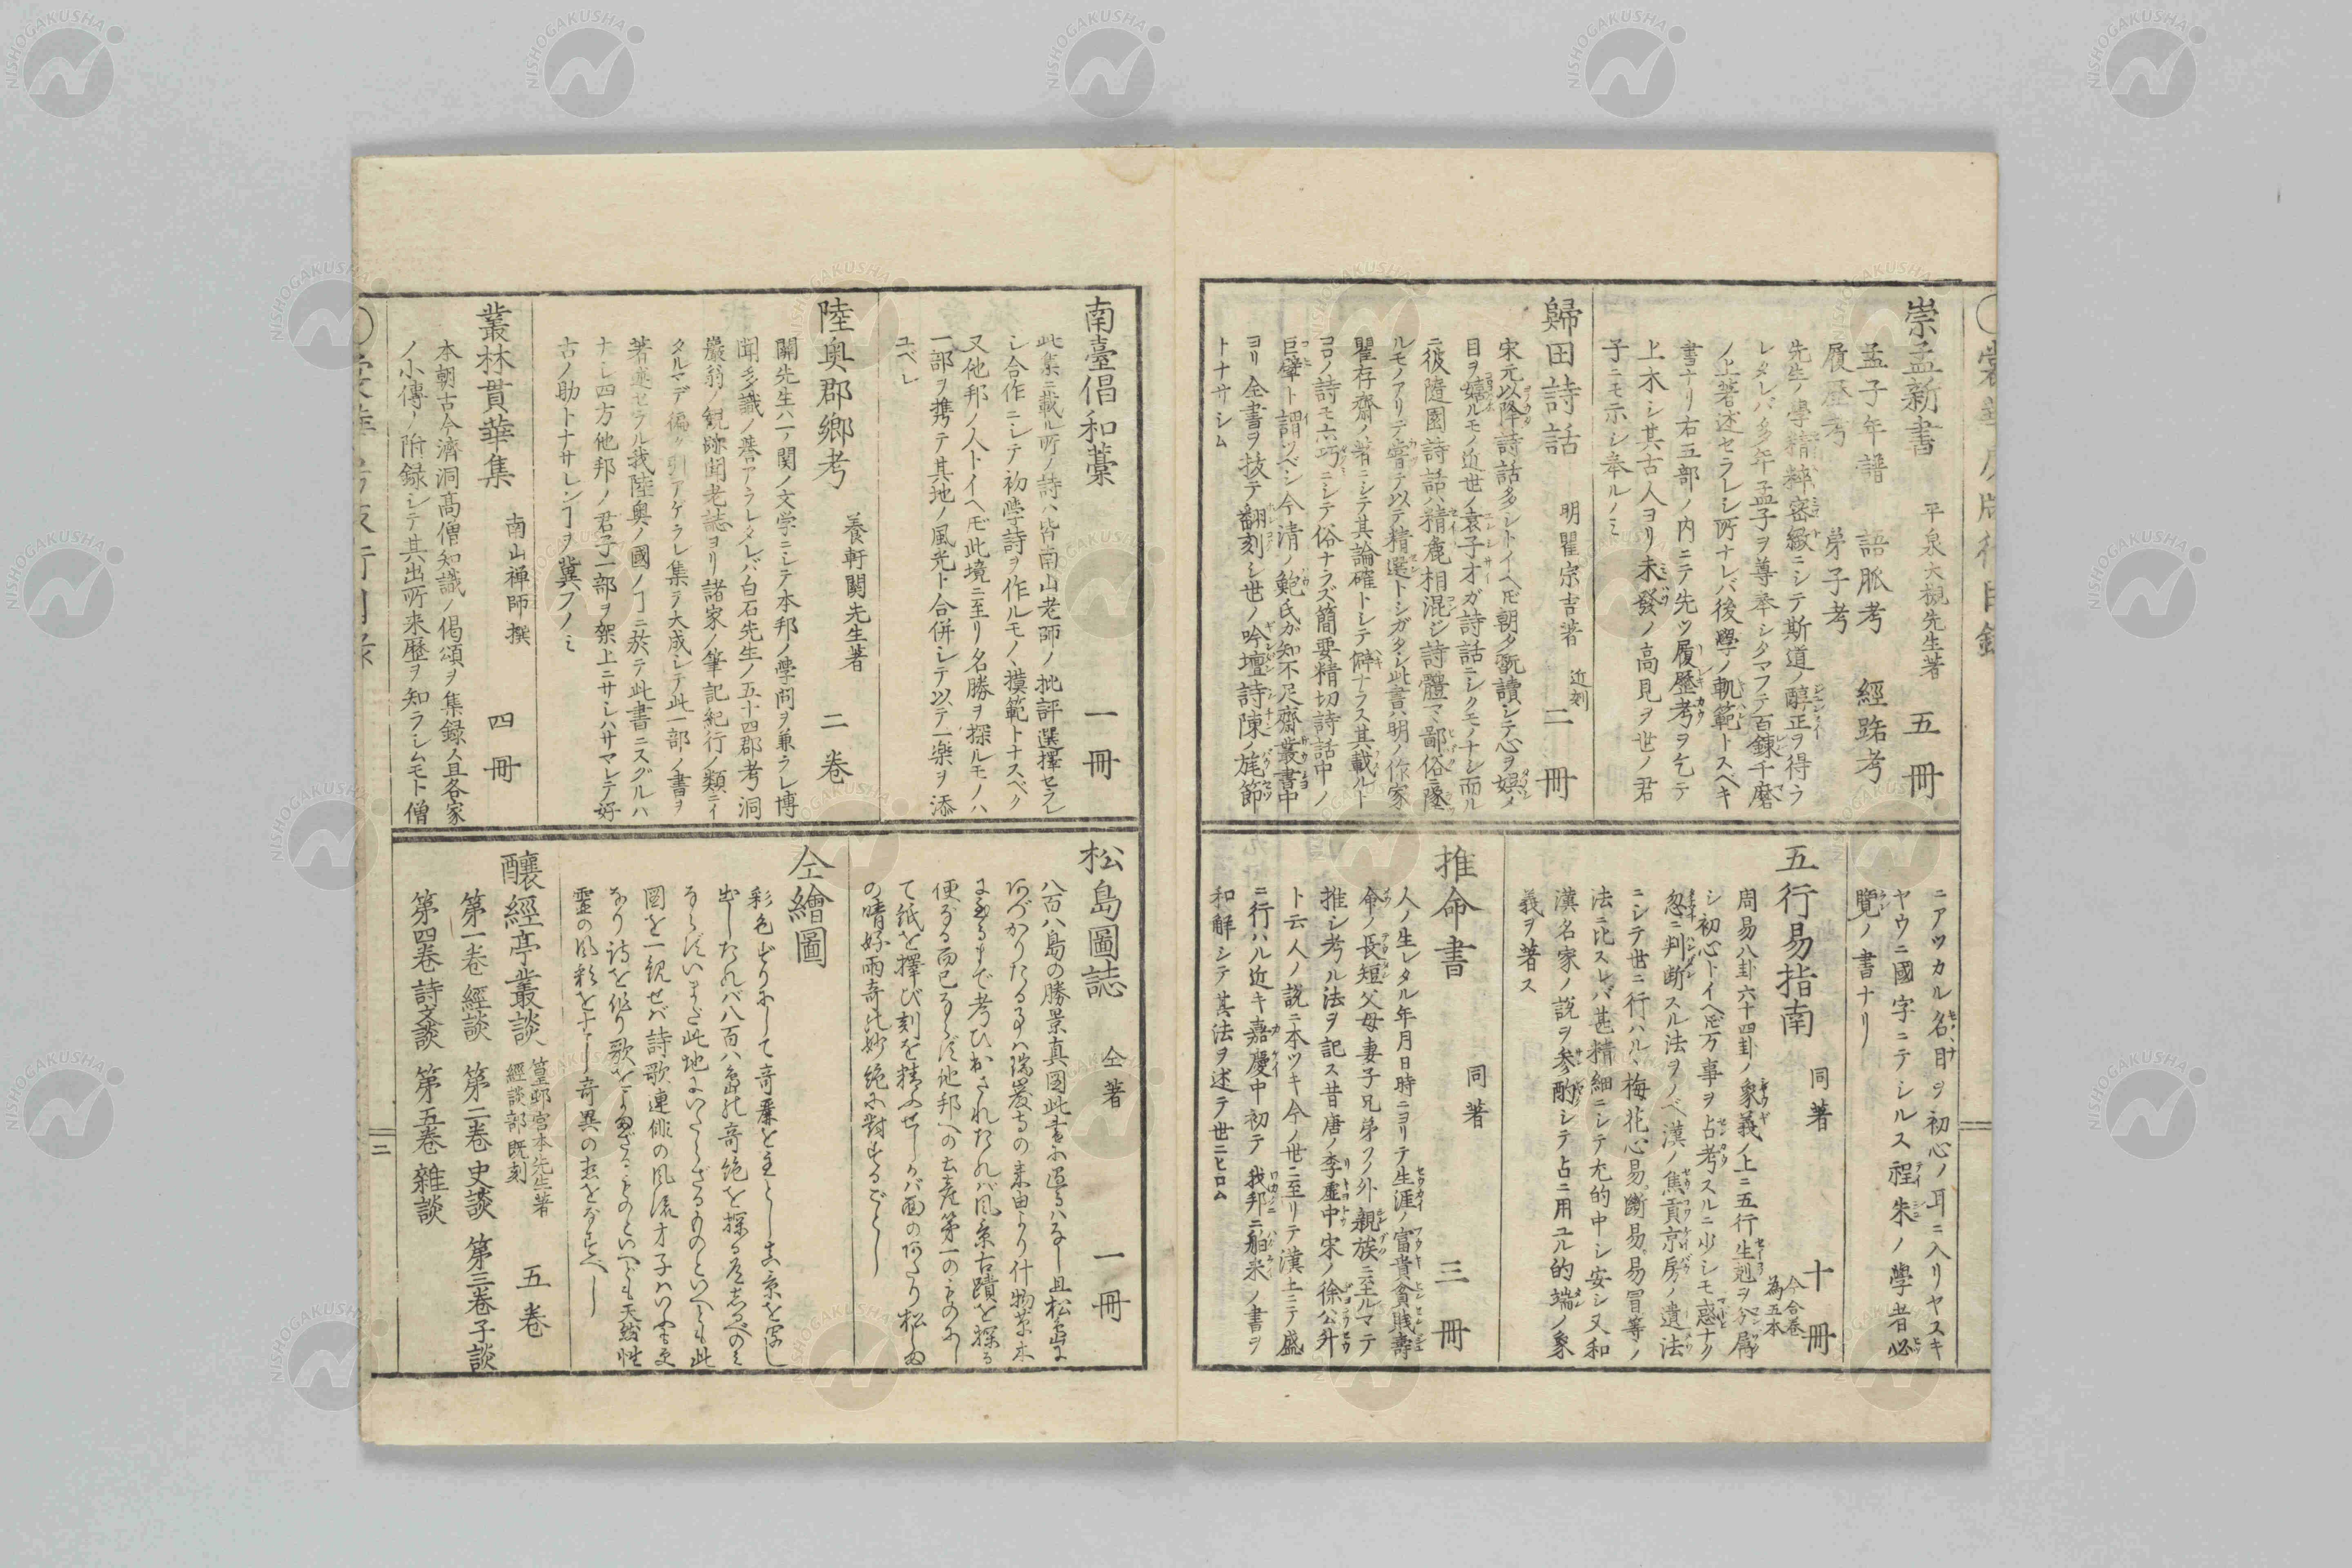 崇孟新書 平泉大槻先生著 五冊
孟子年譜 語脈考 經臵考
履歴考 弟子考
先生ノ學精粹密緻ニシテ斯道ノ醇正ヲ得ラ
レタレバ多年孟子ヲ尊奉シタマフテ百錬千磨
ノ上著述セラレシ所ナレバ後學ノ軌範トスベキ
書ナリ右五部ノ内ニテ先ツ履歴考ヲ乞テ
上木シ其古人ヨリ未發ノ高見ヲ世ノ君
子ニモ示シ奉ルノミ
歸田詩話 明瞿宗吉著 近刻 二冊
宋元以降詩話多シトイヘ𪜈朝夕翫讀シテ心ヲ娯メ
目ヲ嬉ルモノ近世ノ袁子才ガ詩話ニシクモノナシ而ル
ニ彼隨園詩話ハ精麁相混ジ詩體マヽ鄙俗ニ墜
ルモノアリテ嘗テ以テ精選トシガタシ此書ハ明ノ作家
瞿存齋ノ著ニシテ其論確トシテ僻ナラス其載ルト
コロノ詩モ亦巧ニシテ俗ナラズ簡要精切詩話中ノ
巨擘ト謂ツベシ今清ノ鮑氏ガ知不足齋叢書中
ヨリ全書ヲ抜テ翻刻シ世ノ吟壇詩陳ノ旄節
トナサシム
ニアツカル名目ヲ初心ノ耳ニ入リヤスキ
ヤウニ國字ニテシルス程朱ノ學者必
覽ノ書ナリ
五行易指南 同著 十冊 今合卷為五本
周易八卦六十四卦ノ象義ノ上ニ五行生剋ヲ分屬
シ初心トイヘ𪜈万事ヲ占考スルニ少シモ惑ナク
忽ニ判断スル法ヲノベ漢ノ焦貢京房ノ遺法
ニシテ世ニ行ハルヽ梅花心易斷易易冒等ノ
法ニ比スレバ甚精細ニシテ尤的中シ安シ又和
漢名家ノ説ヲ参酌シテ占ニ用ユル的端ノ象
義ヲ著ス
推命書 同著 三冊
人ノ生レタル年月日時ニヨリテ生涯ノ富貴貧賎壽
命ノ長短父母妻子兄弟フノ外親族ニ至ルマテ
推シ考ル法ヲ記ス昔唐ノ李虚中宋ノ徐公升
ト云人ノ説ニ本ツキ今ノ世ニ至リテ漢土ニテ盛
ニ行ハル近キ嘉慶中初テ我邦ニ舶来ノ書ヲ
和解シテ其法ヲ述テ世ニヒロム
南臺倡和藁 一冊
此集ニ載ル所ノ詩ハ皆南山老師ノ批評選擇セラレ
シ合作ニシテ初学詩ヲ作ルモノヽ摸範トナスベク
又他邦ノ人トイヘ𪜈此境ニ至リ名勝ヲ探ルモノハ
一部ヲ携テ其地ノ風光ト合併シテ以テ一楽ヲ添
ユベレ
陸奥郡郷考 養軒関先生著 二卷
関先生ハ一ノ関ノ文学ニシテ本邦ノ学問ヲ兼ラレ博
聞多識ノ譽アラレタレバ白石先生ノ五十四郡考洞
巖翁ノ観跡聞老誌ヨリ諸家ノ筆記紀行ノ類ニイ
タルマデ徧ク引アケラレ集テ大成シテ此一部ノ書ヲ
著述セラル我陸奥ノ國ノヿニ於テ此書ニスグルハ
ナレ四方他邦ノ君子一部ヲ架上ニサシハサマレテ好
古ノ助トナサレンヿヲ冀フノミ
叢林貫華集 南山禅師撰 四冊
本朝古今濟洞高僧知識ノ偈頌ヲ集録ス且各家
ノ小傳ノ附録シテ其出所来歴ヲ知ラシムモト僧
松島圖誌 仝著 一冊
八百八島の勝景真図此書に過るハなし且松島に
便なる而已ならず他邦への土産第一のものにし
て紙を擇び刻を精ふせしかバ
の晴好雨奇
仝繪圖
彩色ずりにして奇麗を主とし
図を一観せバ詩歌連俳の風流才子ハ
なり詩を作り歌を
霊の風彩を
釀經亭叢談 篁邨宮本先生著 經談部既刻 五卷
第一卷經談 第二卷史談 第三卷子談
第四卷詩文談 第五卷雜談
二
NISHOGAKUSHA